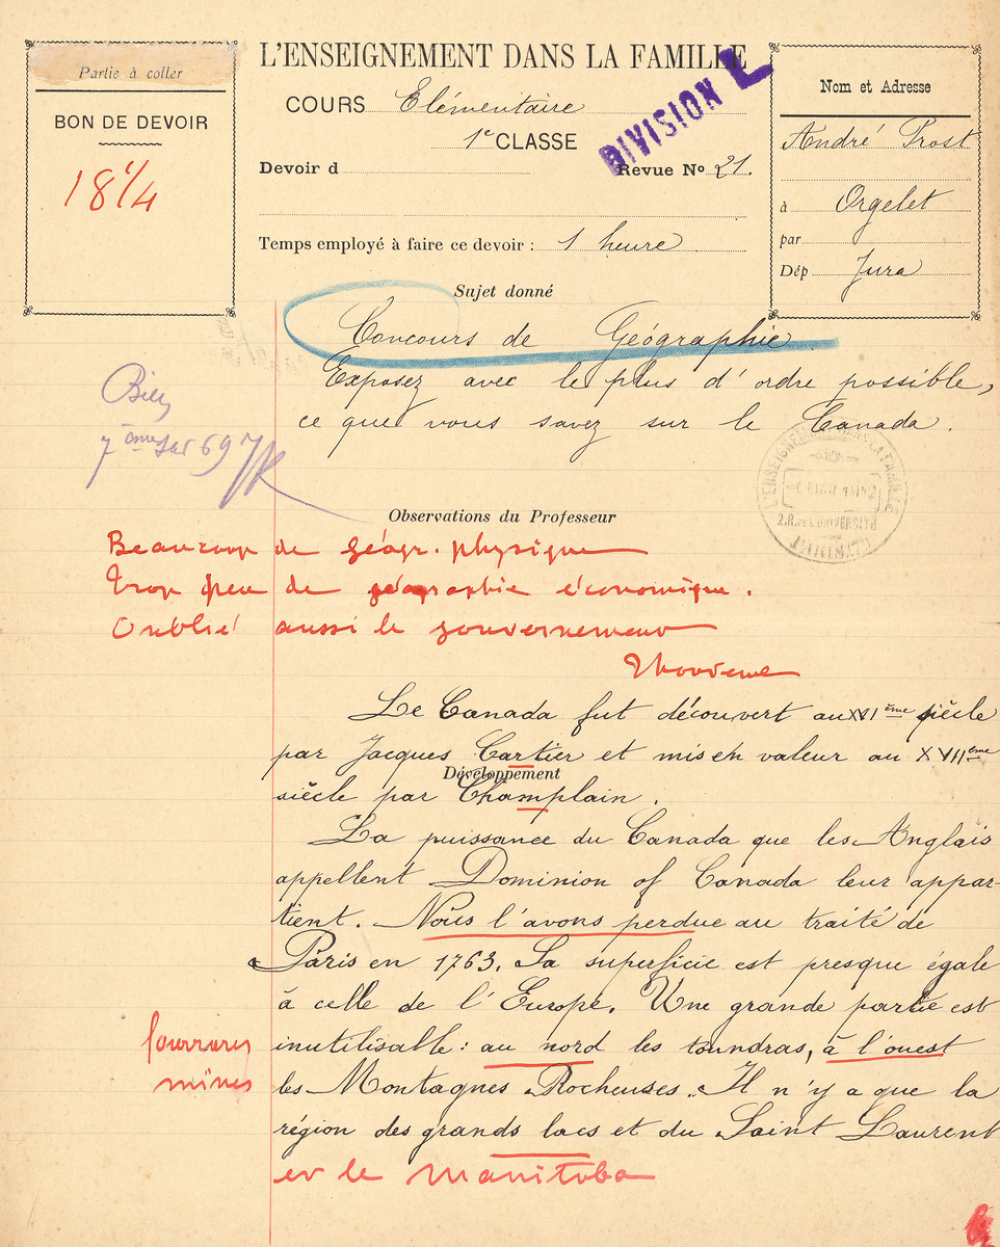 Partie à coller
BON DE DEVOIR
18 1/4
L'ENSEIGNEMENT DANS LA FAMILLE
COURS Elémentaire
1e CLASSE
DIVISION L
Devoir d
Revue No 21.
Temps employé à faire ce devoir : 1 heure
Nom et Adresse
André Prost
à Orgelet
par
Dép Jura
Sujet donné
Concours de Géographie
Exposez avec le plus d'ordre possible,
ce que vous savez sur le Canada.
Bien
7ème sur 69
L'ENSEIGNEMENT DANS LA FAMILLE
2.R. de L'UNIVERSITÉ
PARIS
Observations du Professeur
Beaucoup de géogr. physique
Trop peu de géographie économique.
Oublié aussi le gouvernement
Le Canada fut découvert au XVIème siècle
par Jacques Cartier et mis en valeur au XVIIème
Développement
siècle par Champlain.
La puissance du Canada que les Anglais
appellent Dominion of Canada leur appar-
tient. Nous l'avons perdue au traité de
Paris en 1763. Sa superficie est presque égale
à celle de l'Europe. Une grande partie est
fourrures
inutilisable : au nord les toundras, à l'ouest
mines
les Montagnes Rocheuses. Il n'y a que la
région des grands lacs et du Saint Laurent
et le Manitoba